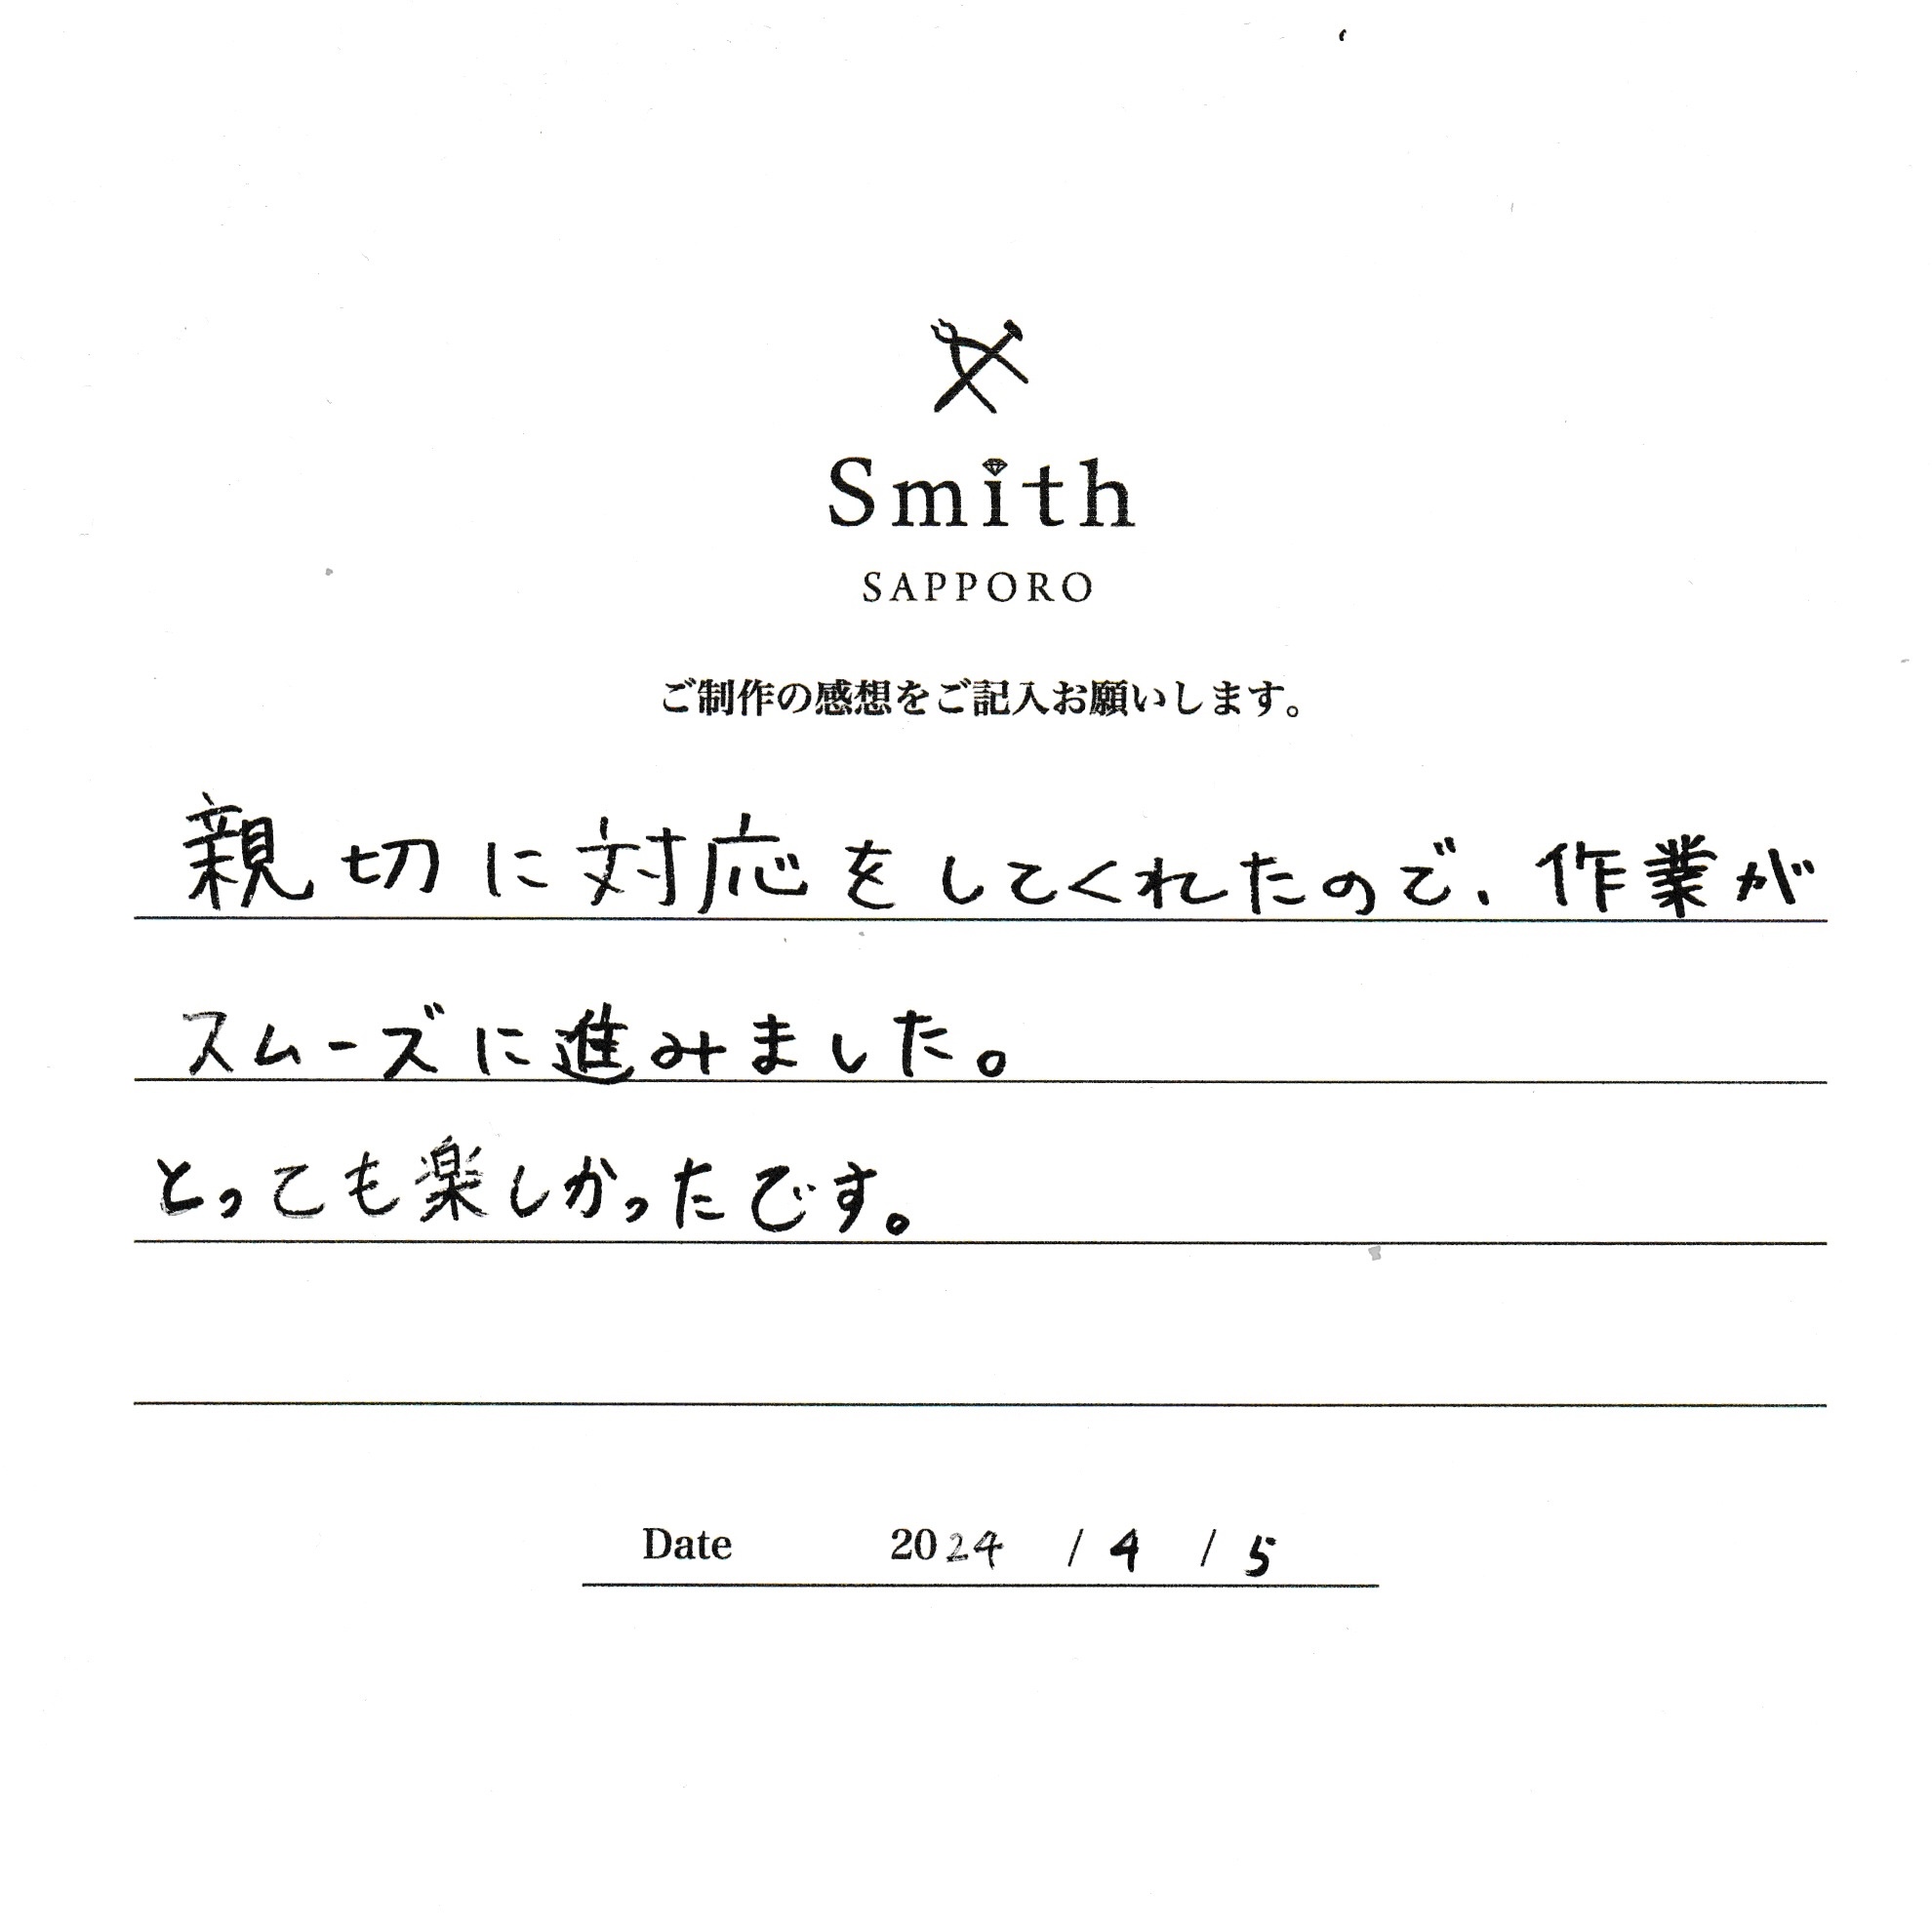 Smith
SAPPORO
ご制作の感想をご記入お願いします。
親切に対応をしてくれたので、作業が
スムーズに進みました。
とっても楽しかったです。
Date 2024 / 4 / 5